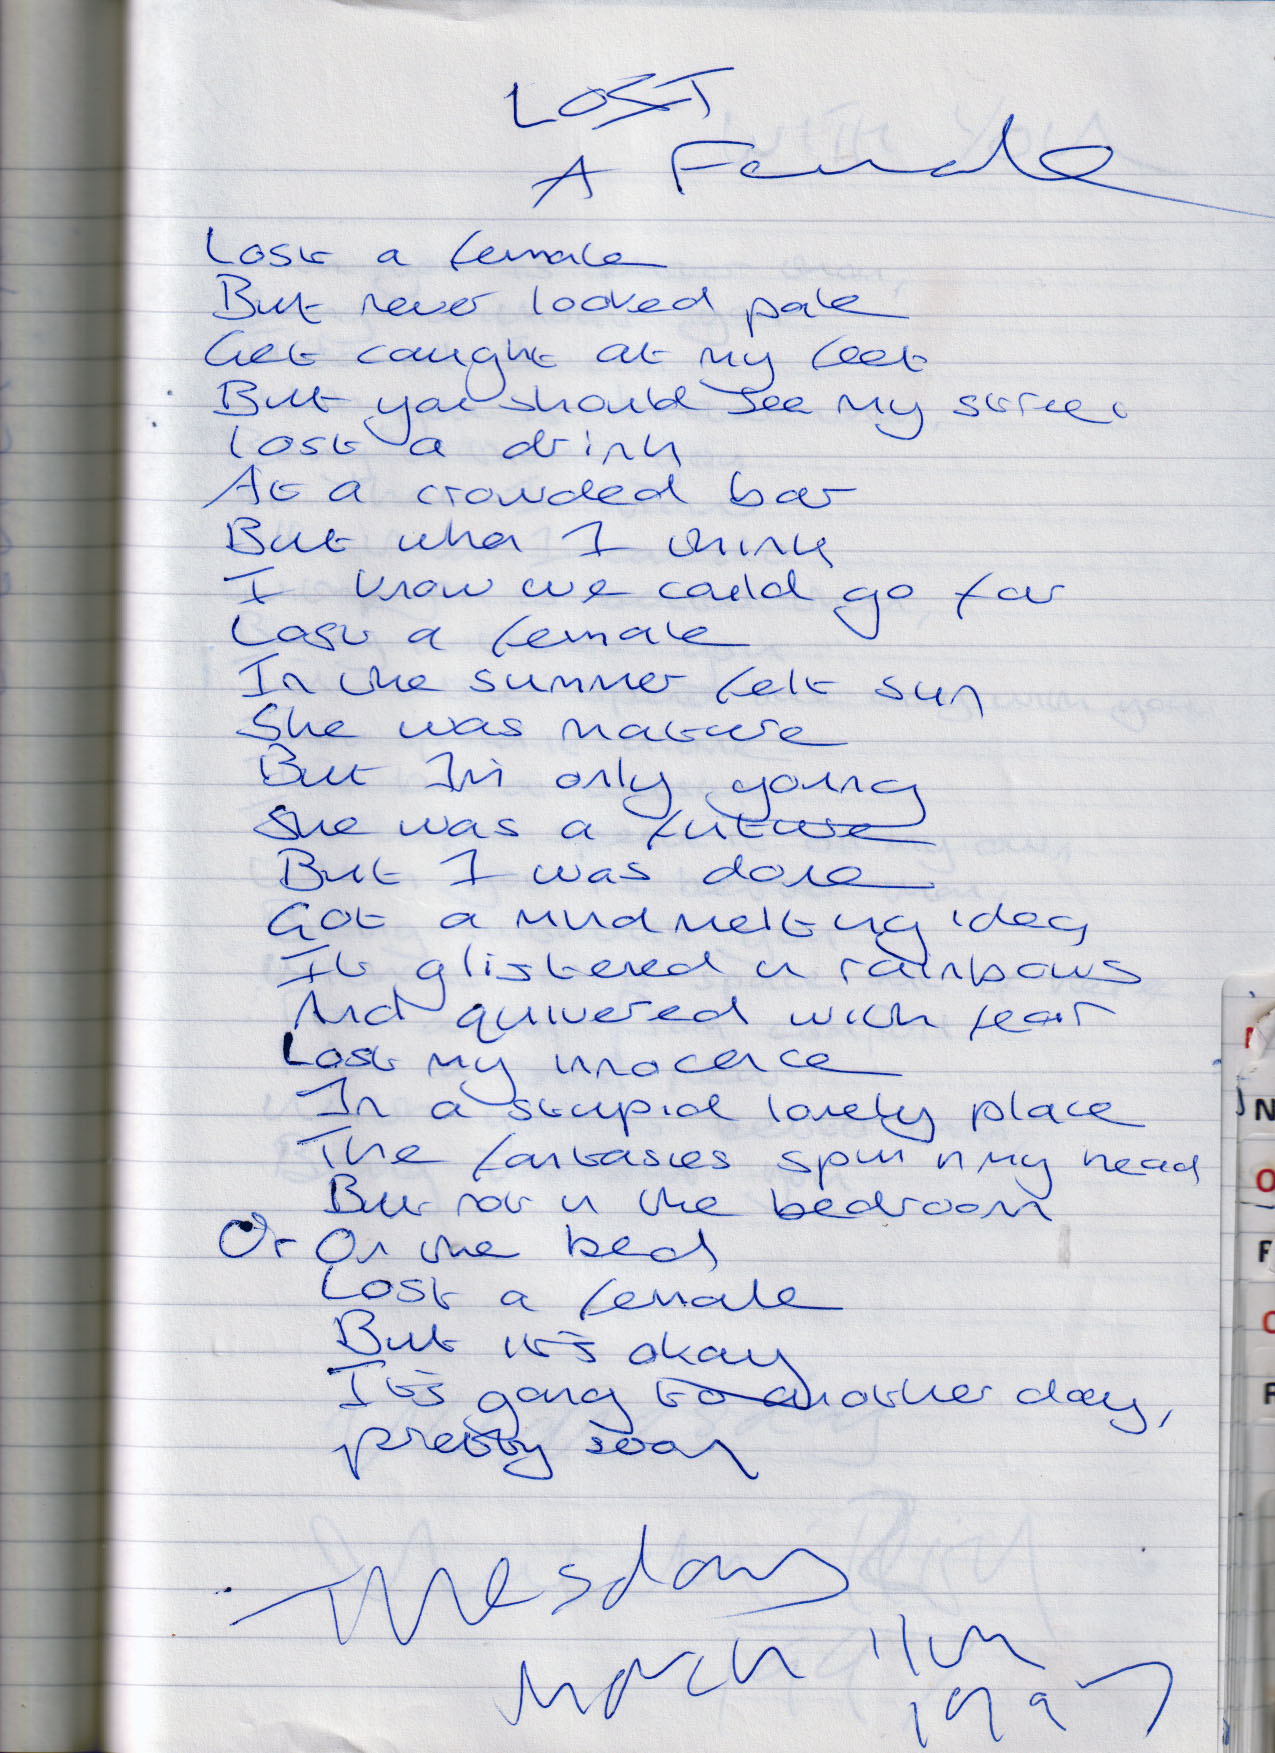 LOST
A Female
Lost a female
But never looked pale
Get caught at my feet
But you should see my street
Lost a drink
At a crowded bar
But when I think
I know we could go far
Lost a female
In the summer felt sun
She was mature
But I'm only young
She was a future
But I was done
Got a mind melting idea
It glistered in rainbows
And quivered with fear
Lost my innocence
In a stupid lonely place
The fantasies spin in my head
But not in the bedroom
Or On the bed
Lost a female
But it's okay
It's going to another day,
pretty soon
Tuesday
March 11th
1997
N
O
F